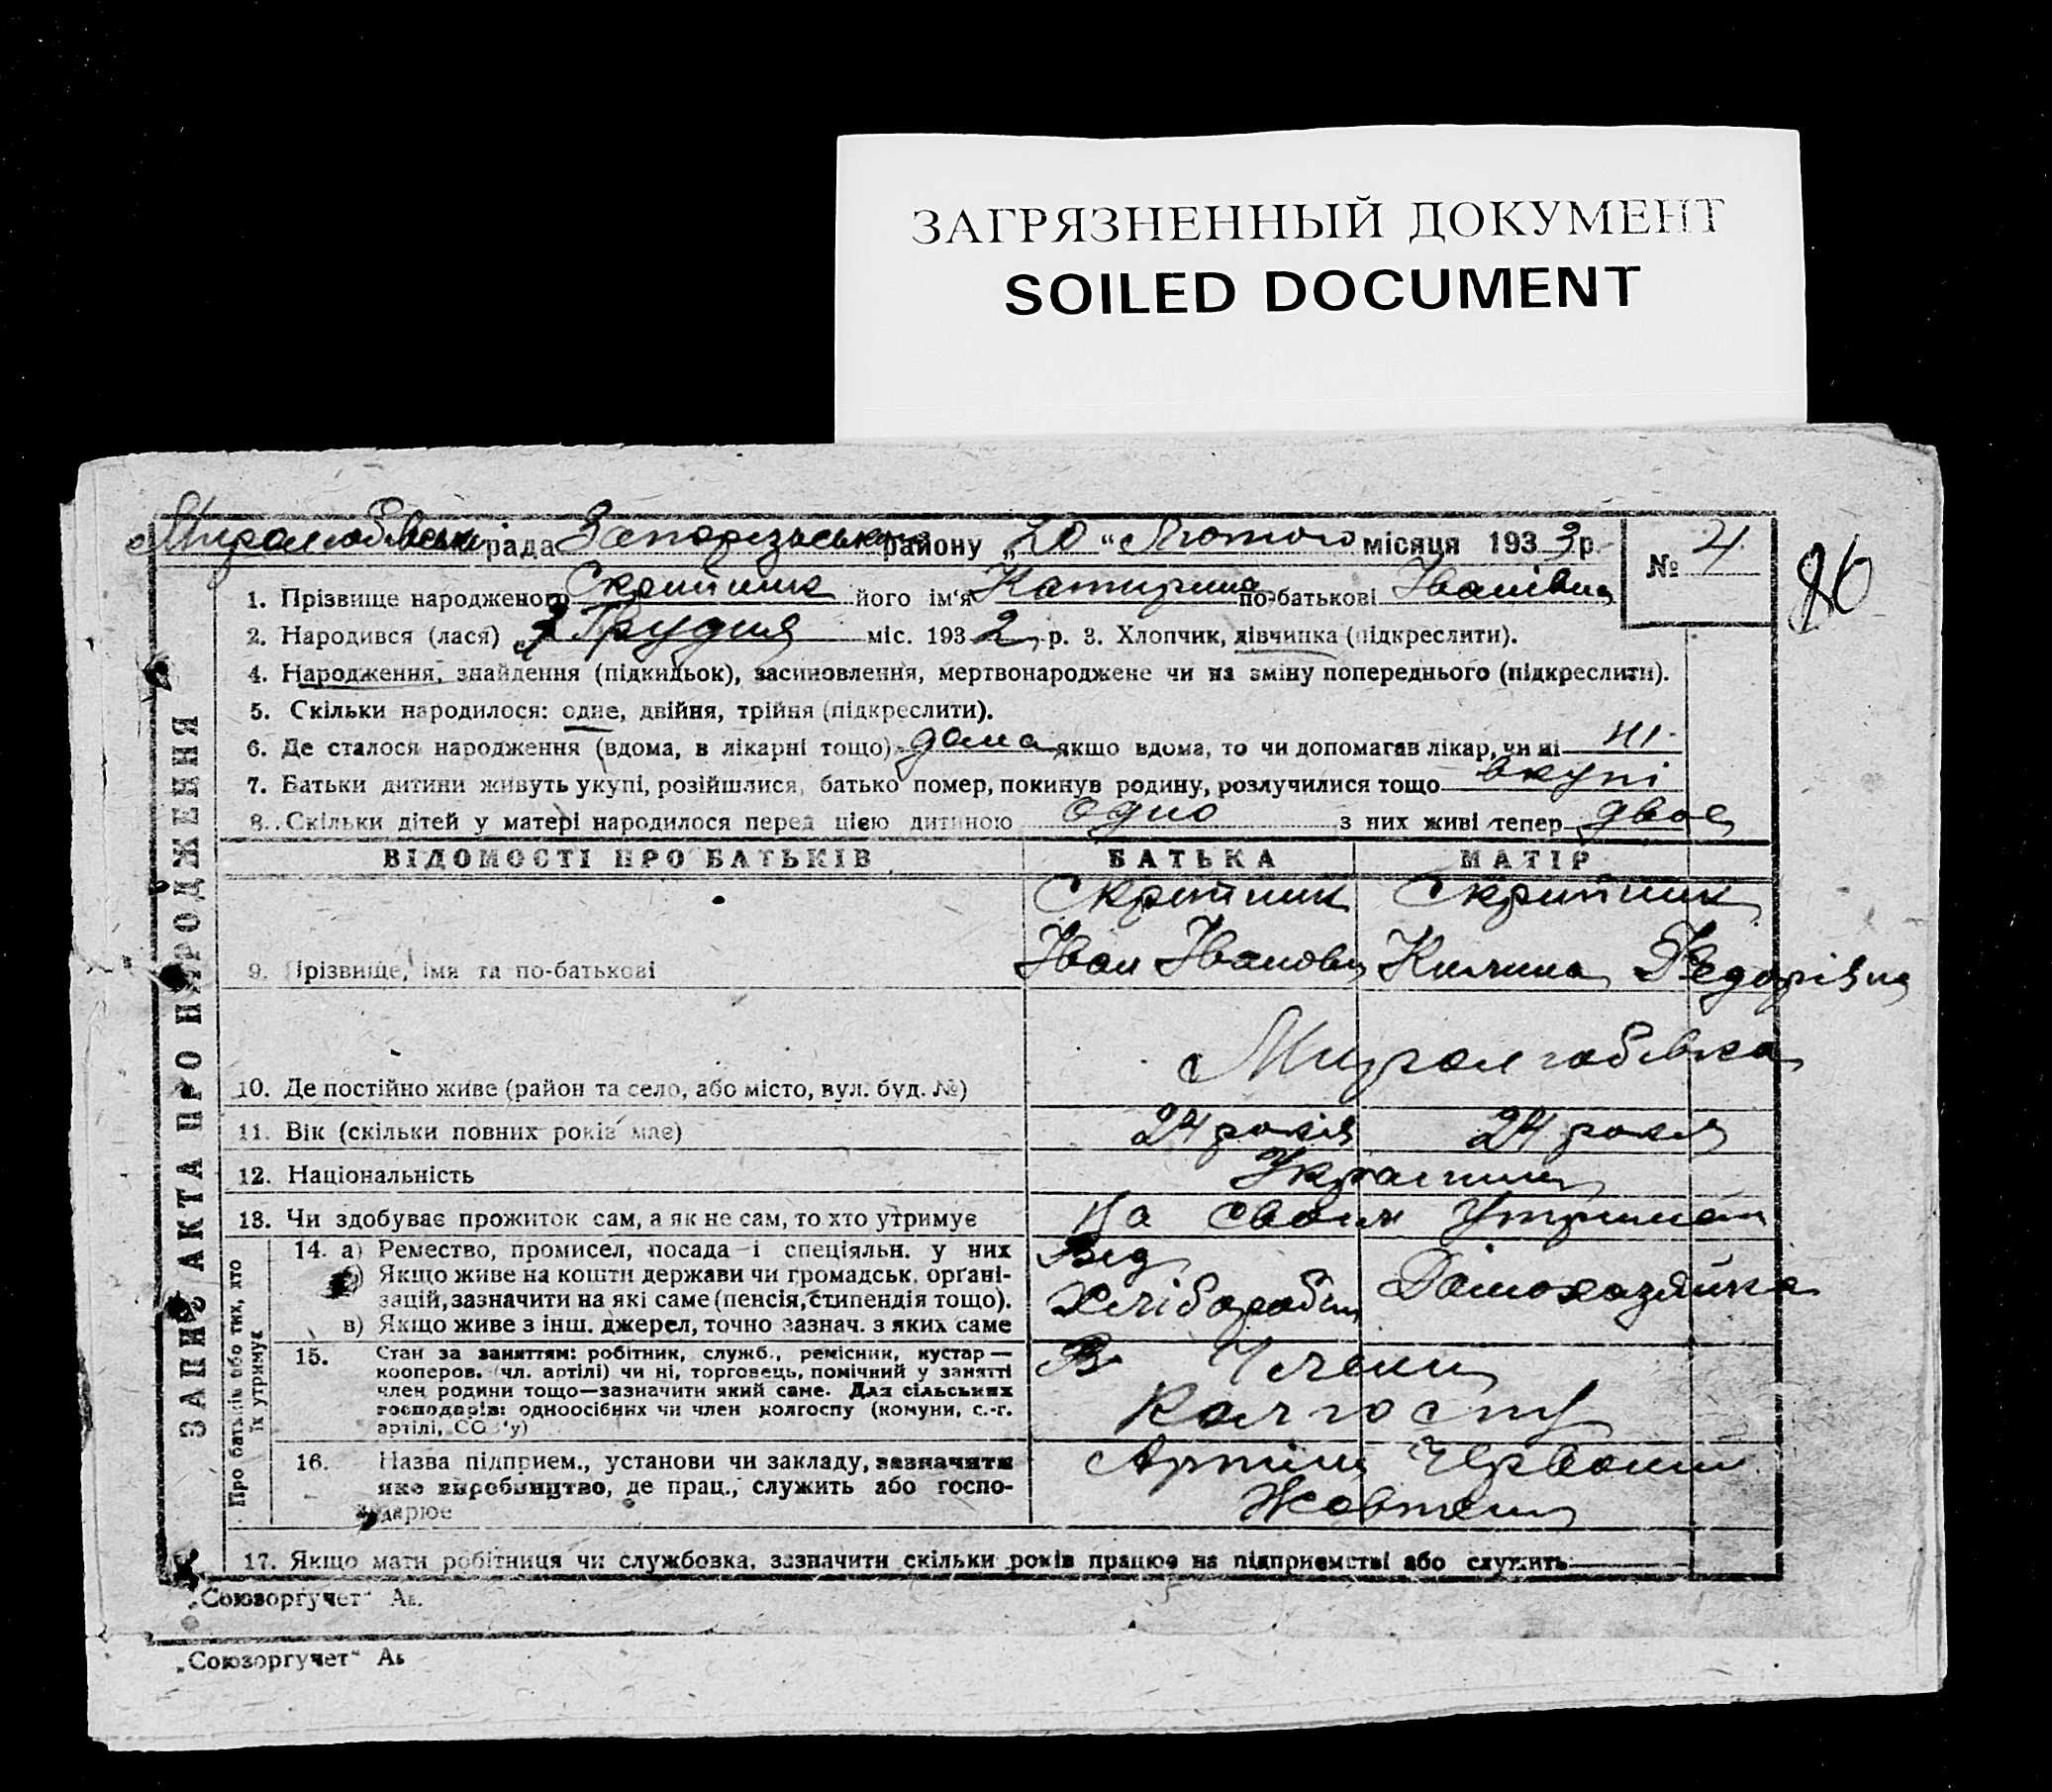 ЗАГРЯЗНЕННЫЙ ДОКУМЕНТ
SOILED DOCUMENT
рада Запорізького району „20“ Лютого місяця 1933 р.
№ 4
1. Прізвище народженого його ім'я Катирина по-батькові Іванівна
2. Народився (лася) Грудня міс. 1932 р. 3. Хлопчик, дівчинка (підкреслити).
4. Народження, знайдення (підкидьок), засиновлення, мертвонароджене чи на зміну попереднього (підкреслити).
5. Скільки народилося: одне, двійня, трійня (підкреслити).
6. Де сталося народження (вдома, в лікарні тощо) дома якщо вдома, то чи допомагав лікар, чи ні ні
7. Батьки дитини живуть укупі, розійшлися, батько помер, покинув родину, розлучилися тощо вкупі
8. Скільки дітей у матері народилося перед цією дитиною одно з них живі тепер двое
ВІДОМОСТІ ПРО БАТЬКІВ БАТЬКА МАТІР
9. Прізвище, імя та по-батькові
Іван Іванович Килина Федорівна
10. Де постійно живе (район та село, або місто, вул. буд. №)
11. Вік (скільки повних років має) 24 років 24 років
12. Національність
13. Чи здобуває прожиток сам, а як не сам, то хто утримує На своїм
ЗАПИС АКТА ПРО НАРОДЖЕННЯ
Про батьків або тих, хто їх утримує
14. а) Ремество, промисел, посада і спеціяльн. у них
б) Якщо живе на кошти держави чи громадськ. органі-
зацій, зазначити на які саме (пенсія, стипендія тощо).
в) Якщо живе з інш. джерел, точно зазнач. з яких саме
Хлібороб Домохазяйка
15. Стан за заняттям: робітник, служб., ремісник, кустар—
кооперов. (чл. артілі) чи ні, торговець, помічний у занятті
член родини тощо—зазначити який саме. Для сільських
господарів: одноосібних чи член колгоспу (комуни, с.-г.
артілі, СОЗ'у)
Члени
Колгоспу
16. Назва підприєм., установи чи закладу, зазначити
яке виробництво, де прац., служить або госпо-
дарює
Артіль Червоний
Жовтень
17. Якщо мати робітниця чи службовка, зазначити скільки років працює на підприємстві або служить
„Союзоргучет“
„Союзоргучет“